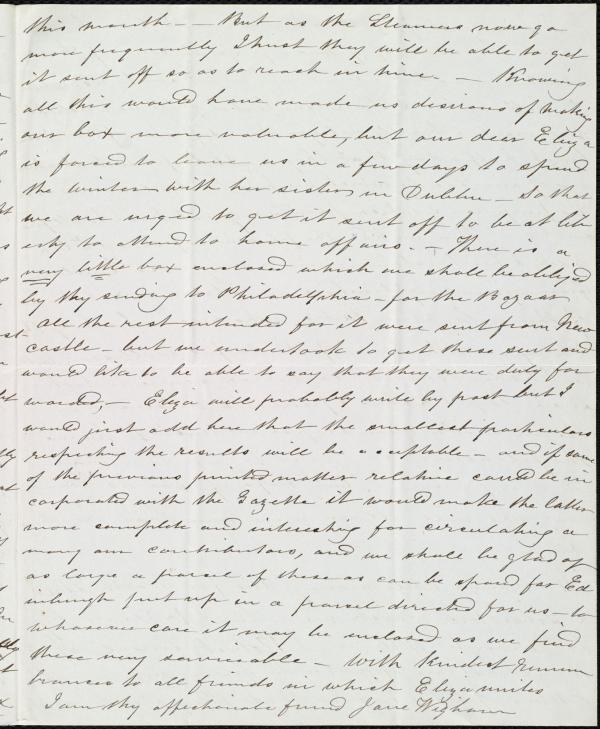 this month — But as the Steamers now go
more frequently I trust they will be able to get
it sent off so as to reach in time. — Knowing
all this would have made us desirous of making
our box more valuable, but our dear Eliza
is forced to leave us in a few days to spend
the winter with her sisters in Dublin — So that
we are urged to get it sent off to be at lib
erty to attend to home affairs. — There is a
very little box enclosed which we shall be obliged
by thy sending to Philadelphia — for the Bazaar
all the rest intended for it were sent from New
castle — but we undertook to get these sent and
would like to be able to say that they were duly for
warded, — Eliza will probably write by post but I
would just add here that the smallest particulars
respecting the results will be acceptable — and if some
of the previous printed matter relative could be in
corporated with the Gazette it would make the latter
more complete and interesting for circulating a
mong our contributors, and we shall be glad of
as large a parcel of these as can be spared for Ed
inburgh put up in a parcel directed for us — to
whosever care it may be enclosed as we find
these very serviceable — With kindest remem
brances to all friends in which Eliza unites
I am thy affectionate friend Jane Wigham